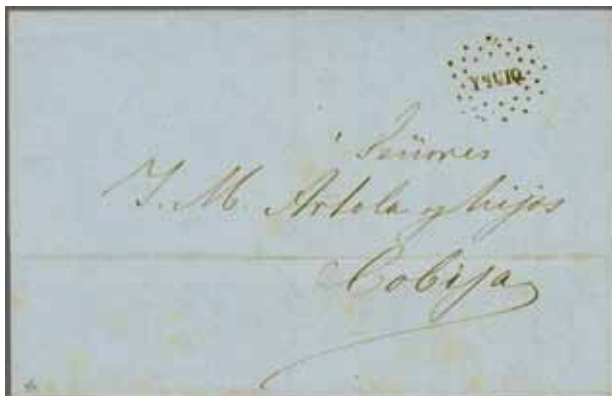 Señores
J. M. Artola y hijos
Cobija